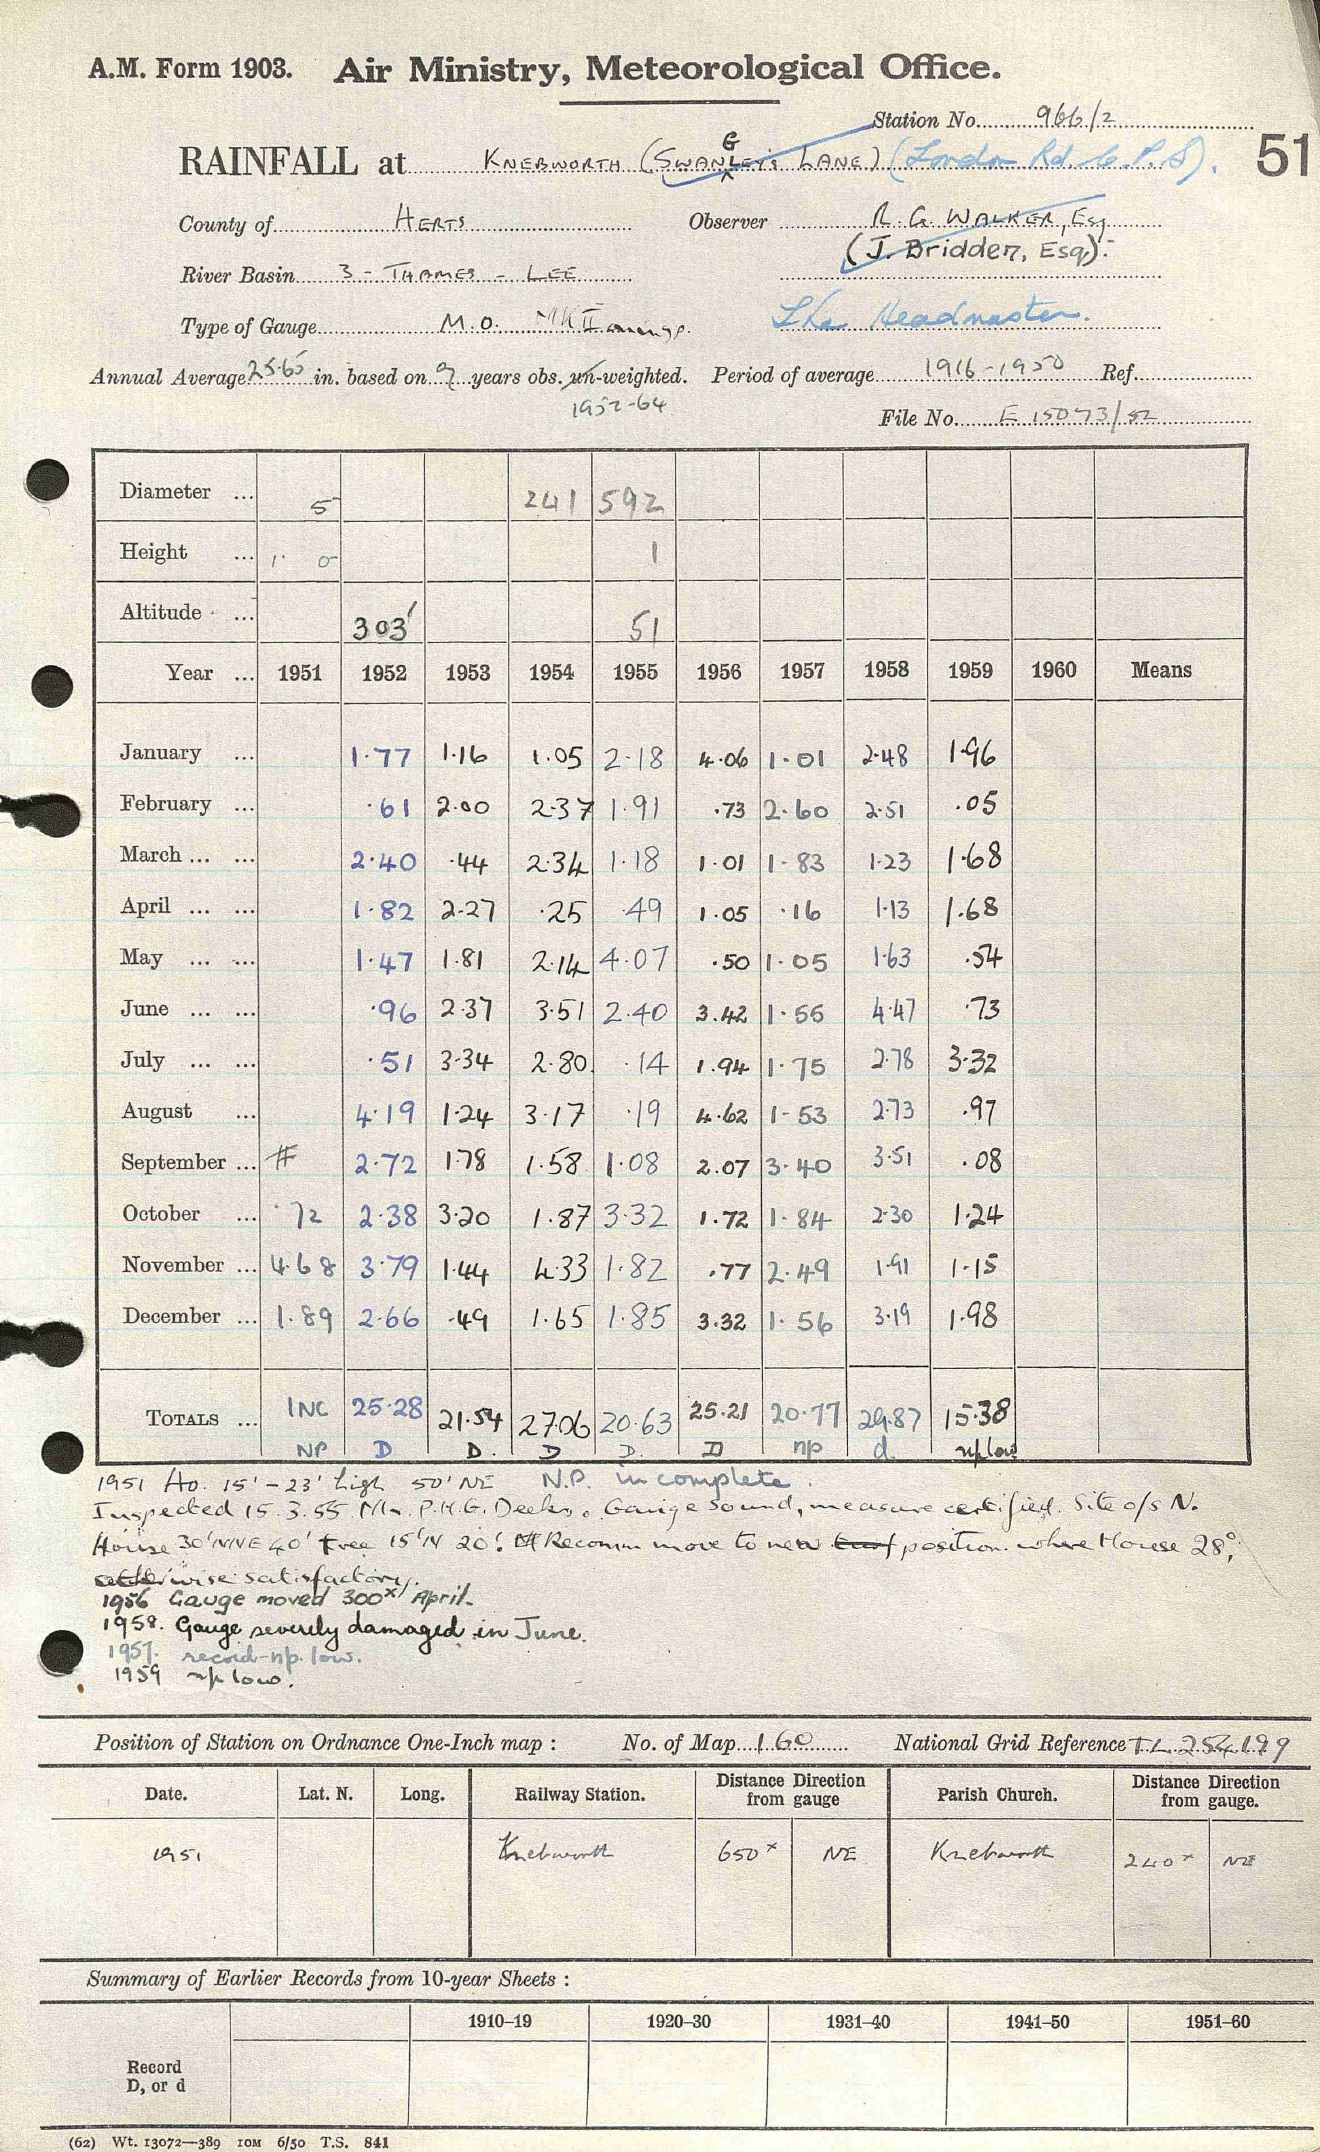 A.M. Form 1903. Air Ministry, Meteorological Office.
Station No. 966/2
RAINFALL at KNEBWORTH (SWANGLEY'S LANE) (London Rd. C.P.S). 51
County of HERTS Observer R. G. WALKER, Esq
(J. Bridden, Esq).
River Basin 3 - THAMES - LEE
Type of Gauge M.O. MK II The Headmaster.
Annual Average 25.65 in. based on 9 years obs. un-weighted. Period of average 1916-1950 Ref.
1952-64
File No. E 15073/52
Diameter ... 5 241 592
Height ... 1' 0 1
Altitude ... 303' 51
Year ... 1951 1952 1953 1954 1955 1956 1957 1958 1959 1960 Means
January ... 1.77 1.16 1.05 2.18 4.06 1.01 2.48 1.96
February ... .61 2.00 2.37 1.91 .73 2.60 2.51 .05
March ... ... 2.40 .44 2.34 1.18 1.01 1.83 1.23 1.68
April ... ... 1.82 2.27 .25 .49 1.05 .16 1.13 1.68
May ... ... 1.47 1.81 2.14 4.07 .50 1.05 1.63 .54
June ... ... .96 2.37 3.51 2.40 3.42 1.55 4.47 .73
July ... ... .51 3.34 2.80 .14 1.94 1.75 2.78 3.32
August ... 4.19 1.24 3.17 .19 4.62 1.53 2.73 .97
September ... # 2.72 1.78 1.58 1.08 2.07 3.40 3.51 .08
October ... .72 2.38 3.20 1.87 3.32 1.72 1.84 2.30 1.24
November ... 4.68 3.79 1.44 4.33 1.82 .77 2.49 1.91 1.15
December ... 1.89 2.66 .49 1.65 1.85 3.32 1.56 3.19 1.98
TOTALS ... INC 25.28 21.54 27.06 20.63 25.21 20.77 29.87 15.38
NP D D. D D. D np d. np low
1951 Ho. 15' - 23' high 50' NE N.P. incomplete.
Inspected 15.3.55 Mr. P.H.G. Deeks. Gauge sound, measure certified. Site o/s N.
House 30' NNE 40' Tree 15' N 20'. Recomm move to new turf position where House 28°,
otherwise satisfactory.
1956 Gauge moved 300x April.
1958. Gauge severely damaged in June.
1957. record-np. low.
1959 np low.
Position of Station on Ordnance One-Inch map : No. of Map 160 National Grid Reference TL 254199
Date. Lat. N. Long. Railway Station. Distance Direction from gauge Parish Church. Distance Direction from gauge.
1951 Knebworth 650x NE Knebworth 240x NE
Summary of Earlier Records from 10-year Sheets :
1910–19 1920–30 1931–40 1941–50 1951–60
Record
D, or d
(62) Wt. 13072—389 10M 6/50 T.S. 841